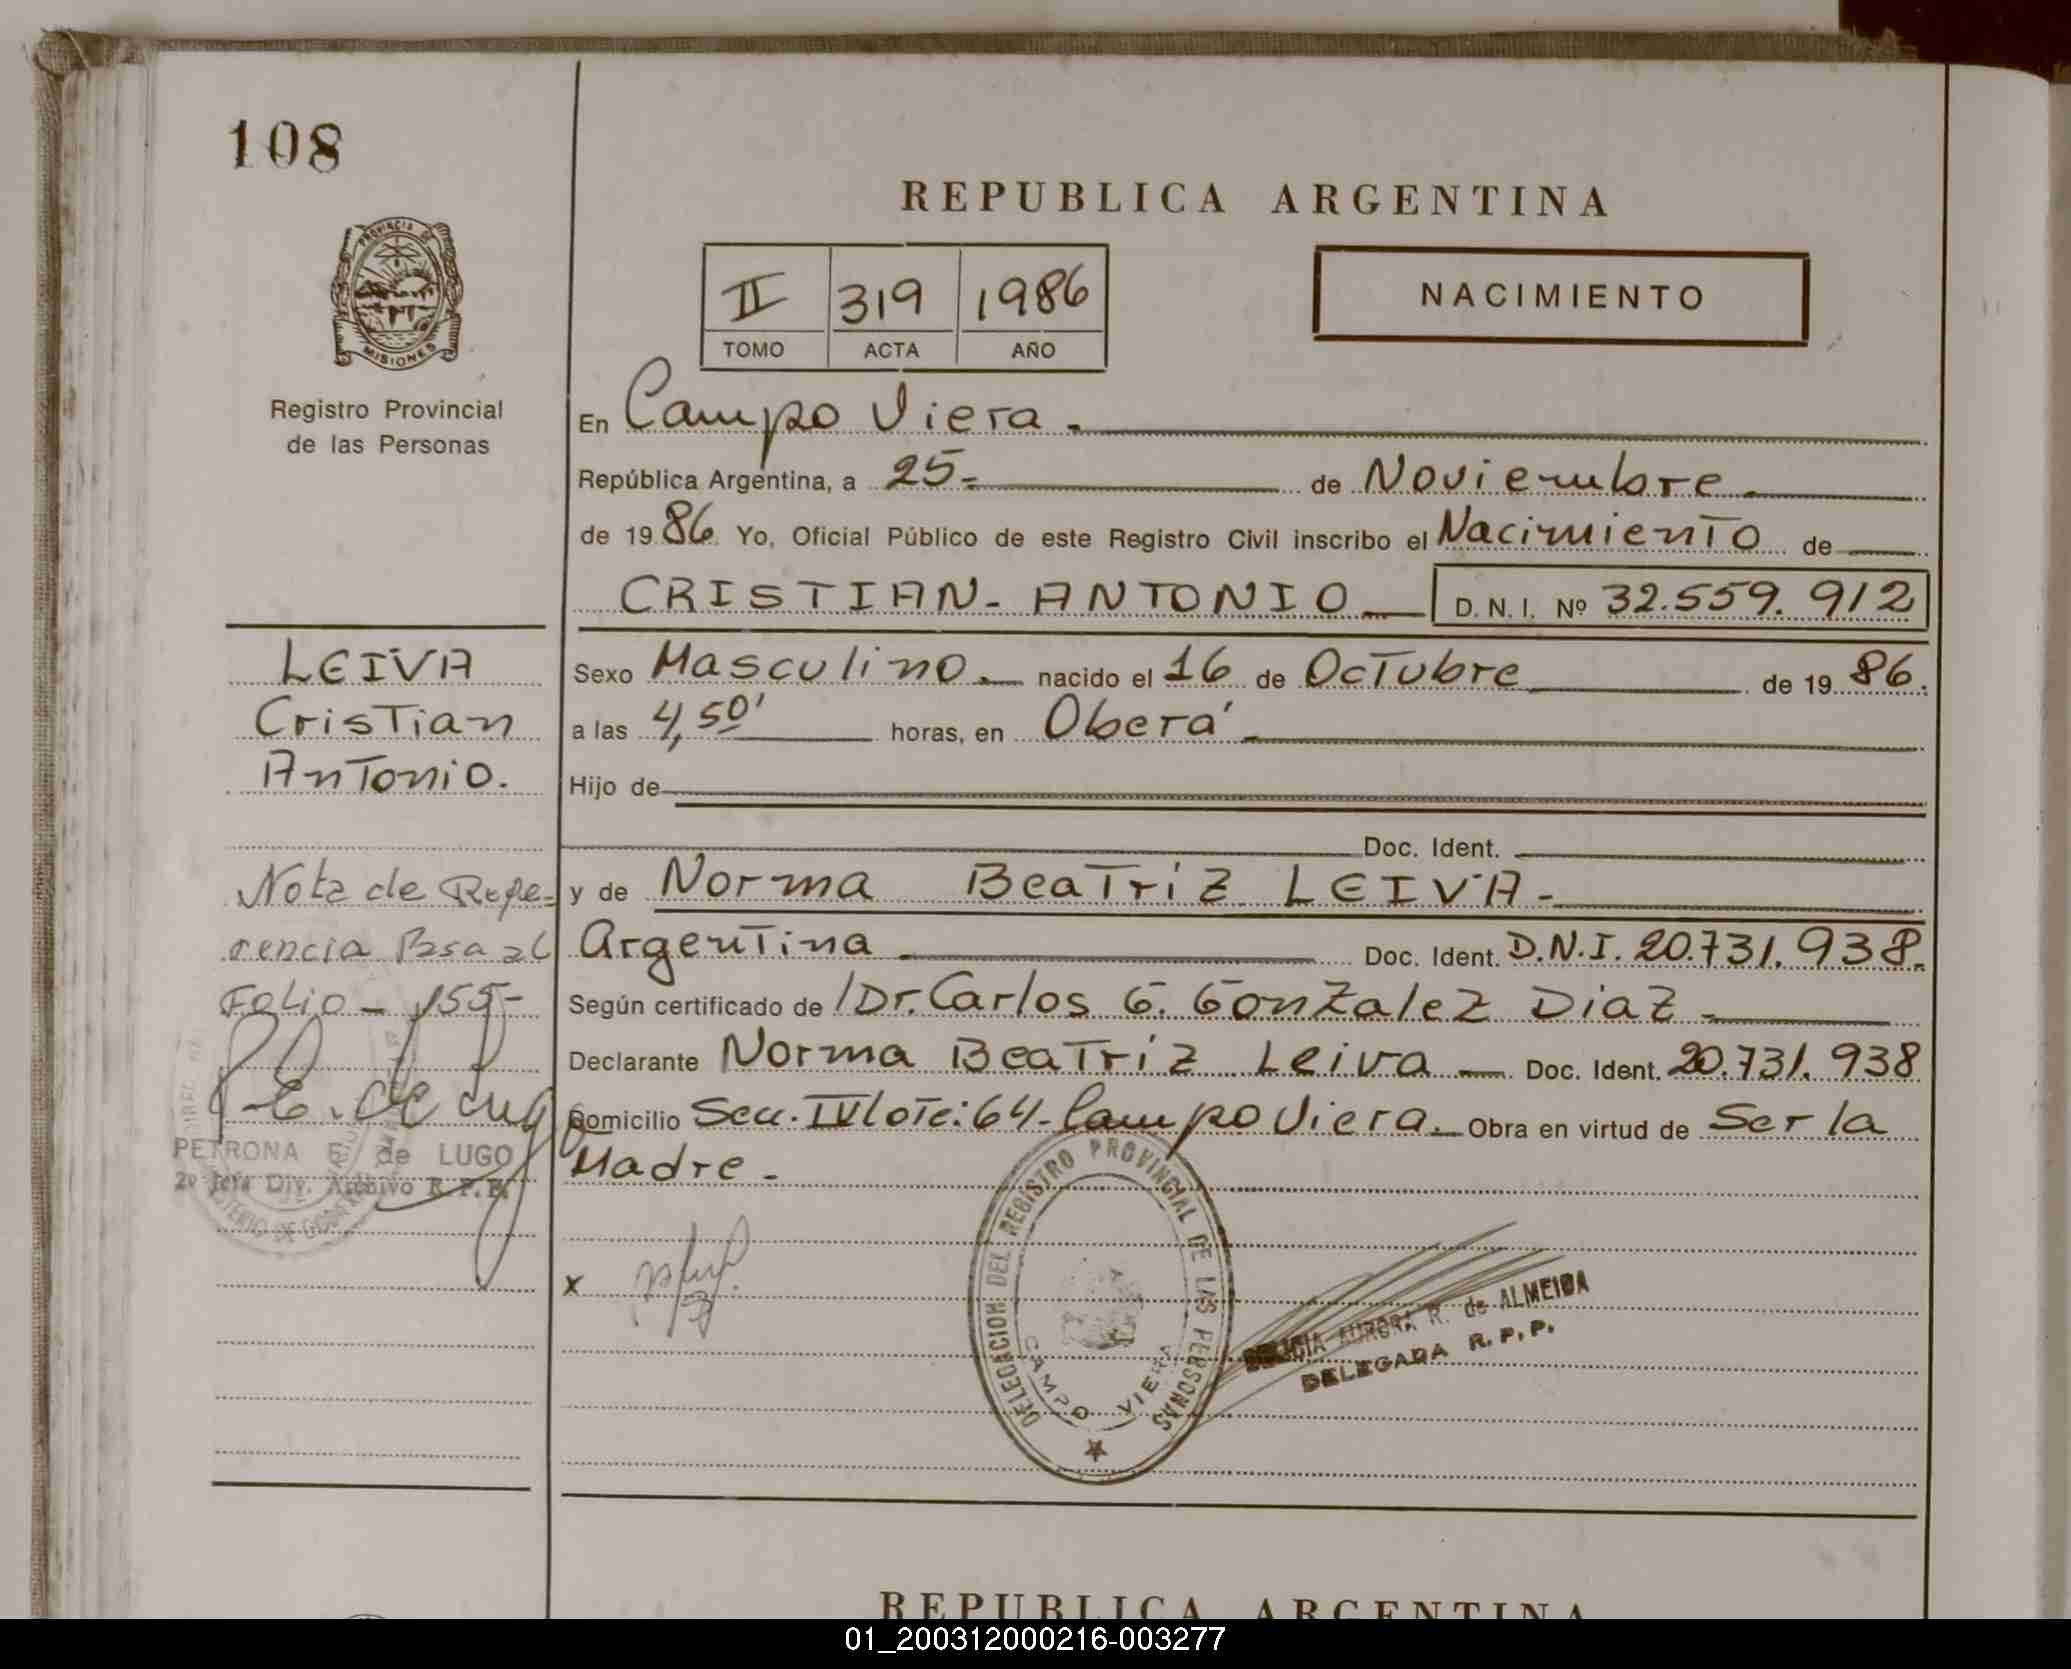 108
REPUBLICA ARGENTINA
PROVINCIA DE
MISIONES
II 319 1986
TOMO ACTA AÑO
NACIMIENTO
Registro Provincial
de las Personas
En Campo Viera.
República Argentina, a 25 de Noviembre.
de 1986. Yo, Oficial Público de este Registro Civil inscribo el Nacimiento de
CRISTIAN - ANTONIO D. N. I. Nº 32.559.912
LEIVA
Cristian
Antonio.
Sexo Masculino. nacido el 16 de Octubre de 1986.
a las 4,50' horas, en Oberá
Hijo de
Doc. Ident.
y de Norma Beatriz LEIVA-
Argentina Doc. Ident. D.N.I. 20.731.938.
Según certificado de Dr. Carlos G. Gonzalez Diaz
Declarante Norma Beatriz Leiva Doc. Ident. 20.731.938
Domicilio Secc. IV lote: 64 - Campo Viera. Obra en virtud de Ser la
Madre -
Nota de Refe=
rencia Pasa al
Folio - 155-
P.E. de Lugo
PETRONA E. de LUGO
2º Jefa Div. Archivo R.P.P.
x
DELEGACION DEL REGISTRO PROVINCIAL DE LAS PERSONAS
CAMPO VIERA
DELICIA AURORA R. de ALMEIDA
DELEGADA R. P. P.
REPUBLICA ARGENTINA
01_200312000216-003277